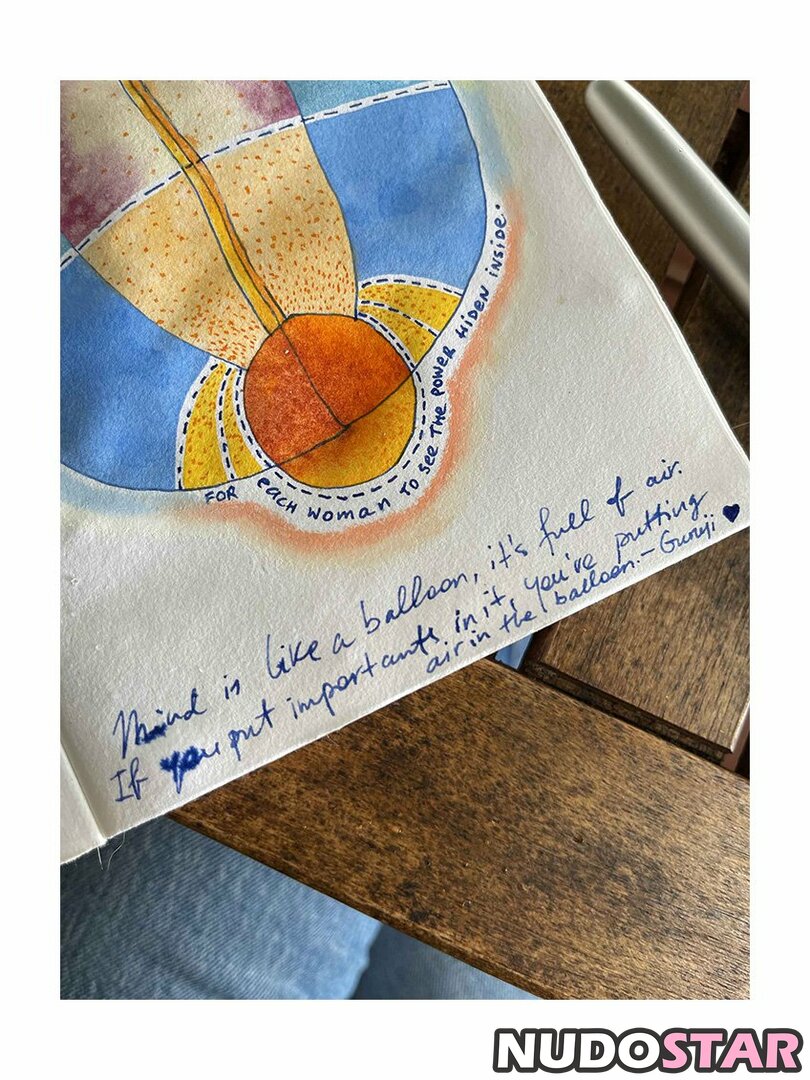 FOR each woman to see the power hiden inside.
Mind is like a balloon, it's full of air.
If you put importants in it, you've putting
air in the balloon. - Guruji
NUDOSTAR